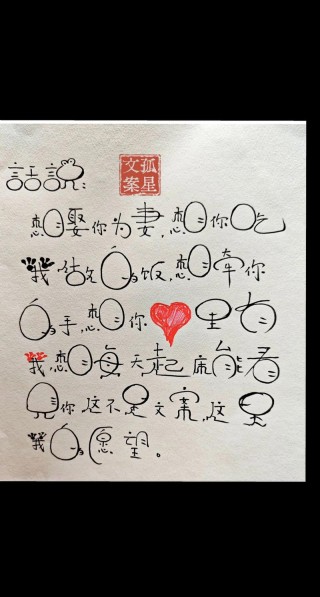 話說:
孤星
文案
想娶你为妻,想你吃
我做的饭,想牵你
的手,想你里有
我,想每天起床能看
见你,这不是文案,这是
我的愿望。